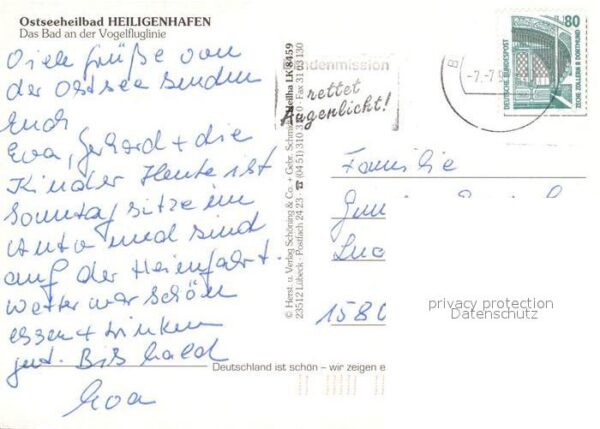 Ostseeheilbad HEILIGENHAFEN
Das Bad an der Vogelfluglinie
Viele Grüße von
der Ostsee senden
Euch
Eva, Gerhard + die
Kinder Heute ist
Sonntag sitze im
Auto und sind
auf der Heimfahrt.
Wetter war schön
essen + trinken
gut. Bis bald
Eva
© Herst. u. Verlag Schöning & Co. + Gebr. Schmidt
23512 Lübeck · Postfach 24 23 · ☎ (04 51) 310
Heilha LK 8459
Fax 31 03 130
ndenmission
rettet
Augenlicht!
-7.-7.9
80
DEUTSCHE BUNDESPOST
ZECHE ZOLLERN II DORTMUND
Familie
1580
privacy protection
Datenschutz
Deutschland ist schön – wir zeigen e